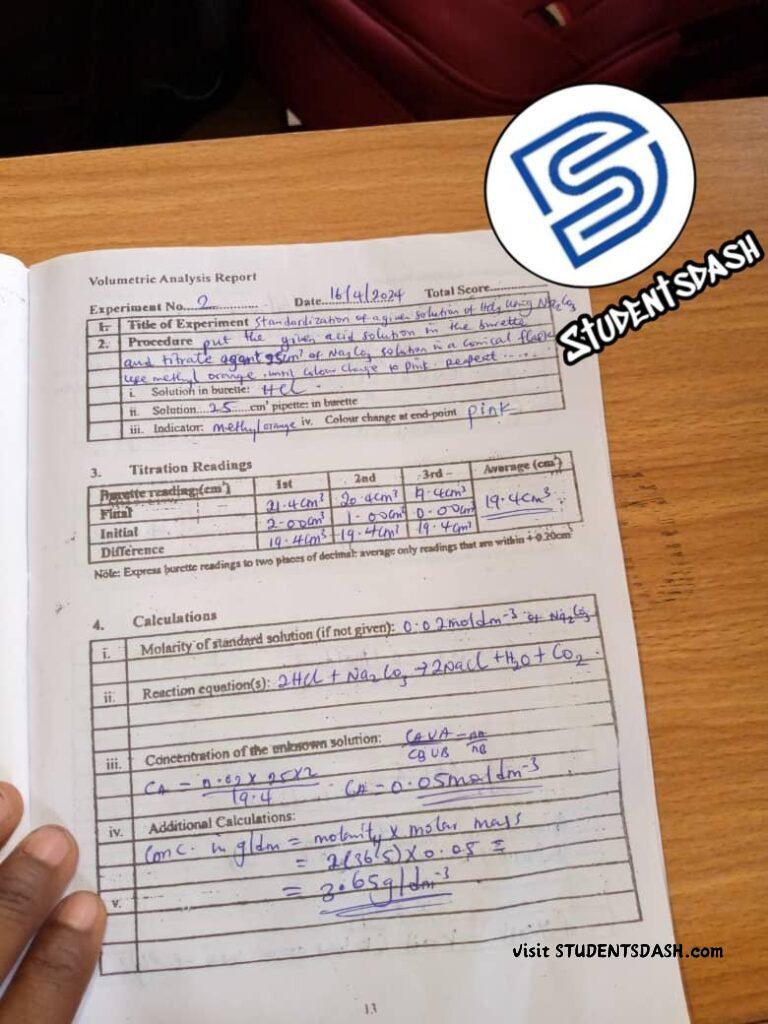 STUDENTSDASH
Volumetric Analysis Report
Experiment No. 2 Date 16/4/2024 Total Score
1. Title of Experiment Standardization of a given solution of HCl using Na2CO3
2. Procedure put the given acid solution in the burette
and titrate against 25cm³ of Na2CO3 solution in a conical flask
use methyl orange until colour change to pink. repeat .....
i. Solution in burette: HCl
ii. Solution 25 cm³ pipette: in burette
iii. Indicator: methyl orange iv. Colour change at end-point pink
3. Titration Readings
Burette reading (cm³) 1st 2nd 3rd Average (cm³)
Final 21.4cm³ 20.4cm³ 19.4cm³ 19.4cm³
Initial 2.00cm³ 1.00cm³ 0.00cm³
Difference 19.4cm³ 19.4cm³ 19.4cm³
Note: Express burette readings to two places of decimal: average only readings that are within +0.20cm³
4. Calculations
i. Molarity of standard solution (if not given): 0.02moldm⁻³ of Na2CO3
ii. Reaction equation(s): 2HCl + Na2CO3 → 2NaCl + H2O + CO2
iii. Concentration of the unknown solution: CAVA/CBVB = nA/nB
CA = 0.02 × 25 × 2/19.4 CA = 0.05moldm⁻³
iv. Additional Calculations:
Conc. in g/dm = molarity × molar mass
= 2(36.5) × 0.05 =
v. = 3.65g/dm⁻³
visit STUDENTSDASH.com
13